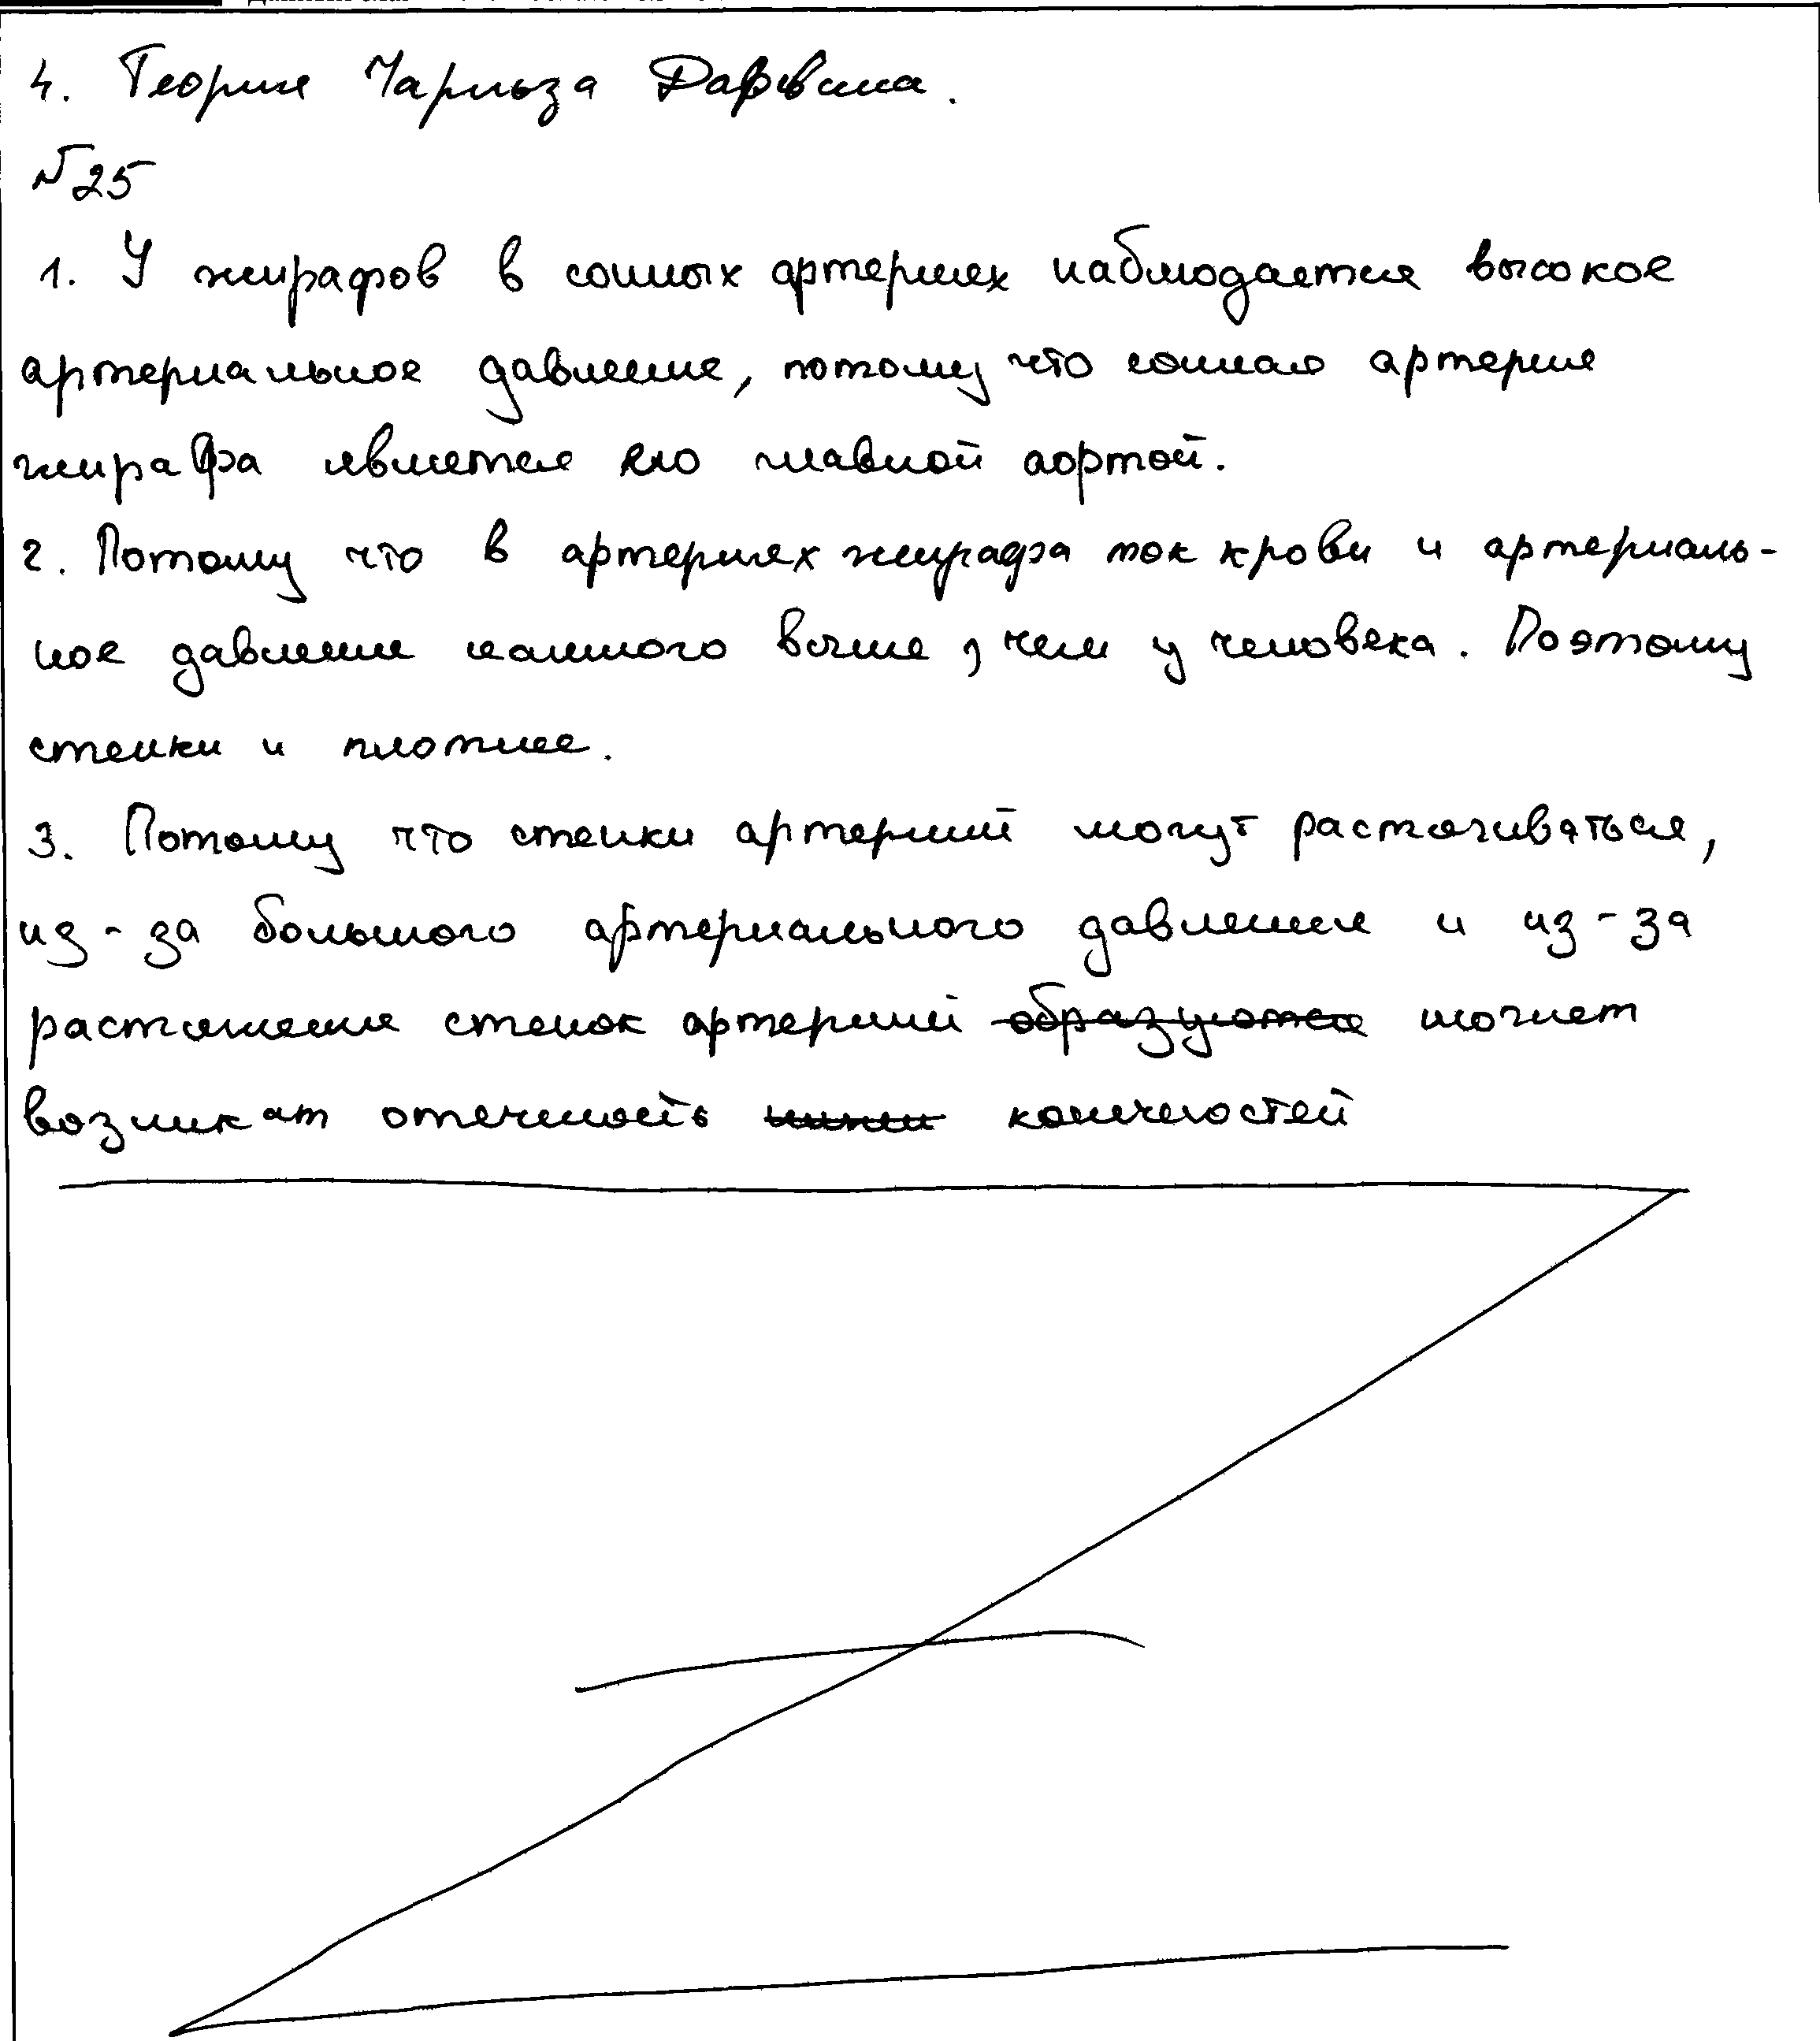 4. Теория Чарльза Дарвина.
№25
1. У жирафов в сонных артериях наблюдается высокое
артериальное давление, потому что сонная артерия
жирафа является его главной аортой.
2. Потому что в артериях жирафа ток крови и артериаль-
ное давление намного выше, чем у человека. Поэтому
стенки и плотнее.
3. Потому что стенки артерий могут растягиваться,
из-за большого артериального давления и из-за
растяжения стенок артерий образуются может
возникат отечность конечностей